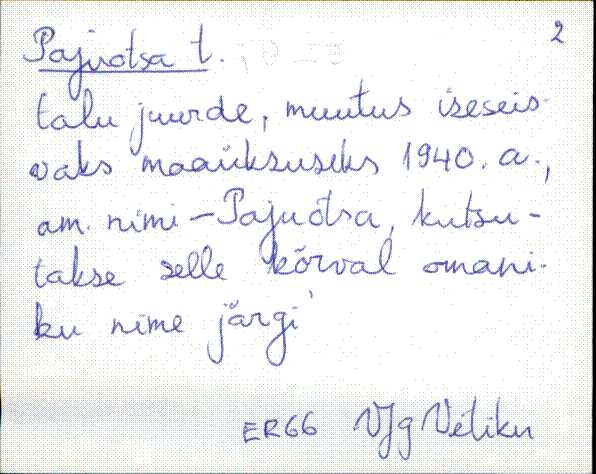 2
Pajuotsa t.
talu juurde, muutus iseseis-
vaks maaüksuseks 1940. a.,
am. nimi – Pajuõtsa, kutsu-
takse selle kõrval omani-
ku nime järgi
ER66 VJg Vetiku